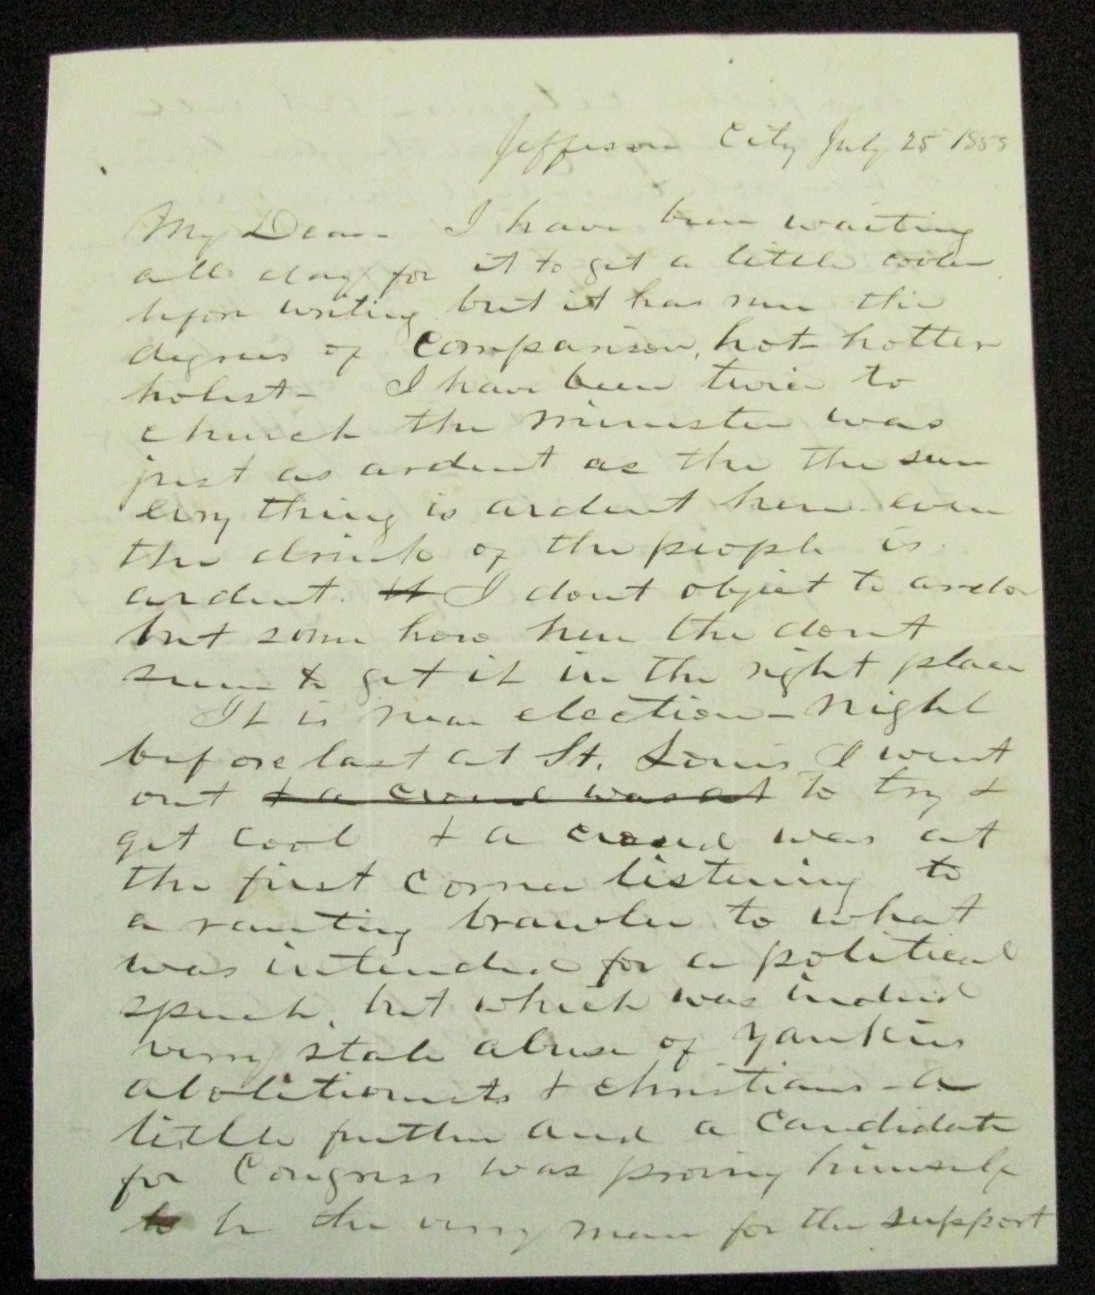 Jefferson City July 25 1858
My Dear I have been waiting
all day for it to get a little cooler
before writing but it has run the
degrees of comparison, hot hotter
hotest - I have been twice to
church the minister was
just as ardent as the the sun
evry thing is ardent here even
the drink of the people is
ardent. It I dont object to ardor
but some how here the dont
seem to get it in the right place
It is near election - Night
before last at St. Louis I went
out & a crowd was at to try &
get cool & a crowd was at
the first corner listening to
a ranting brawler to what
was intended for a political
speech, but which was indeed
very stale abuse of Yankees
abolitionists & christians - a
little further and a candidate
for Congress was proving himself
to be the very man for the support